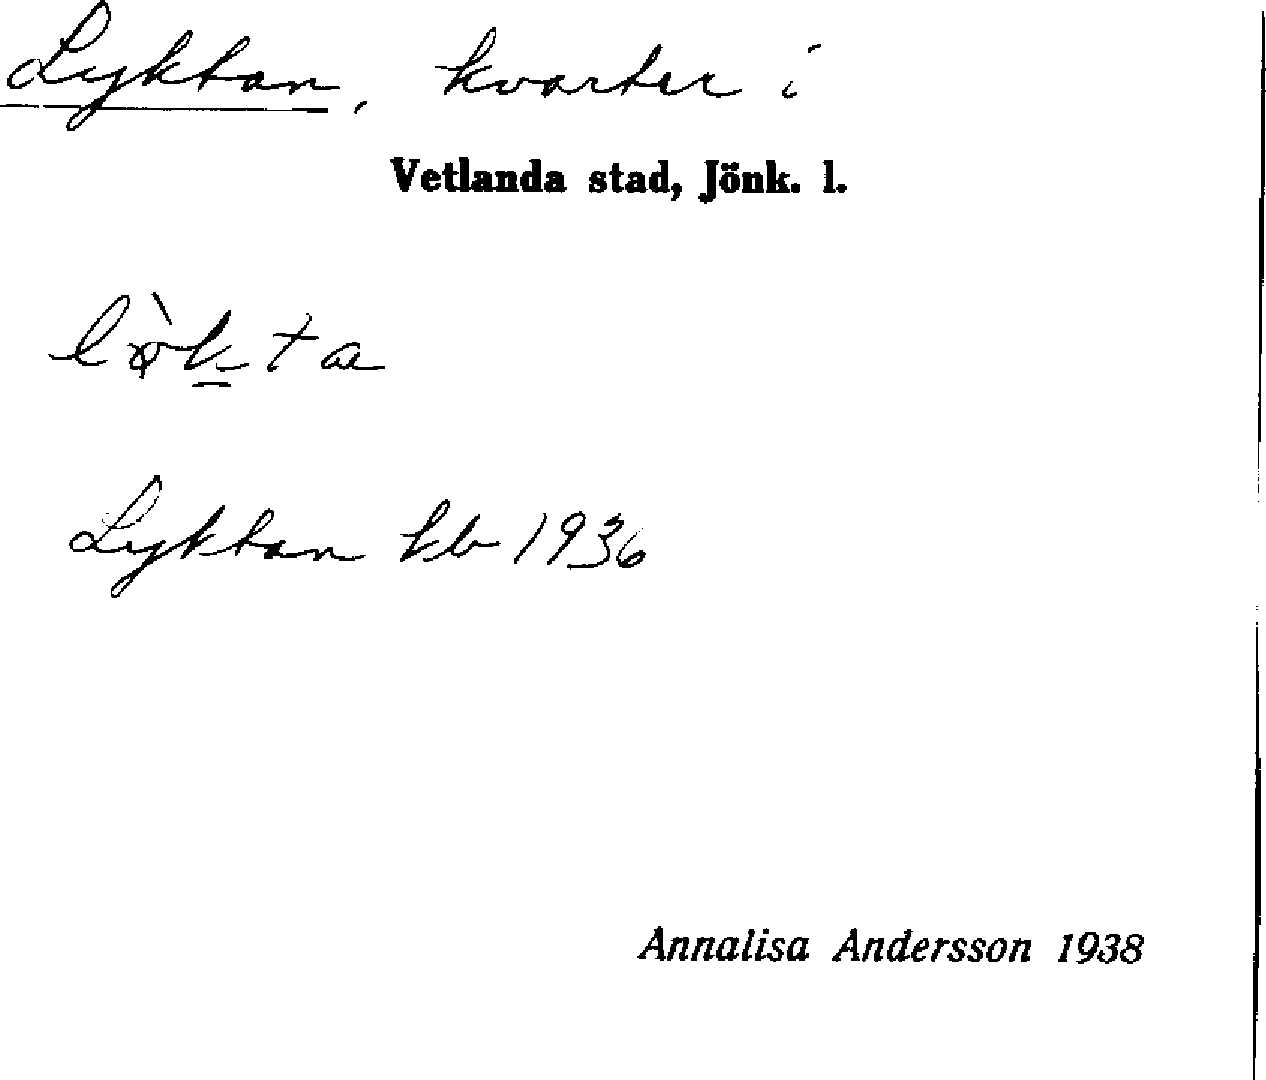 Lyktan, kvarter i
Vetlanda stad, Jönk. l.
lø̀k̲ta
Lyktan kb 1936
Annalisa Andersson 1938